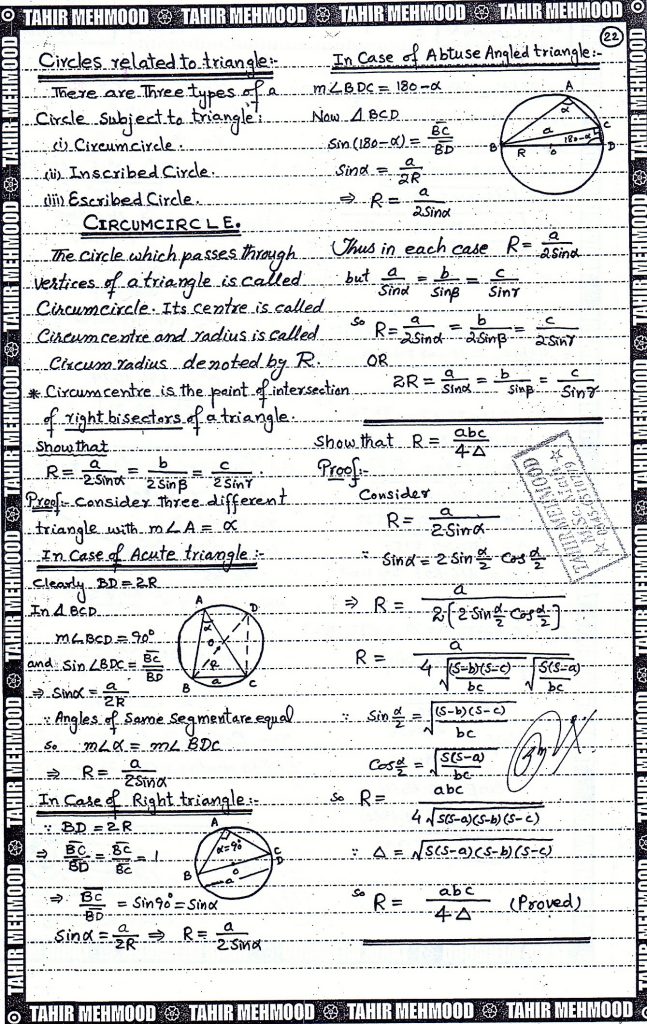 TAHIR MEHMOOD TAHIR MEHMOOD TAHIR MEHMOOD TAHIR MEHMOOD
22
Circles related to triangle:-
There are Three types of a
Circle Subject to triangle:
(i) Circumcircle.
(ii) Inscribed Circle.
(iii) Escribed Circle.
CIRCUMCIRCLE.
The circle which passes through
vertices of a triangle is called
Circumcircle. Its centre is called
Circumcentre and radius is called
Circum radius denoted by R.
* Circumcentre is the point of intersection
of right bisectors of a triangle.
Show that
R = a/2Sinα = b/2Sinβ = c/2Sinγ
Proof:- Consider three different
triangle with m∠A = α
In Case of Acute triangle:-
Clearly BD = 2R
In Δ BCD
m∠BCD = 90°
and Sin∠BDC = BC/BD
⇒ Sinα = a/2R
∵ Angles of Same Segment are equal
So m∠α = m∠BDC
⇒ R = a/2Sinα
A D α O R B a C
In Case of Right triangle:-
∵ BD = 2R
⇒ BC/BD = BC/BC = 1
⇒ BC/BD = Sin90° = Sinα
Sinα = a/2R ⇒ R = a/2Sinα
A α=90° B C D O a
In Case of Abtuse Angled triangle:-
m∠BDC = 180-α
Now Δ BCD
Sin(180-α) = BC/BD
Sinα = a/2R
⇒ R = a/2Sinα
A α B a C 180-α D R O
Thus in each case R = a/2Sinα
but a/Sinα = b/Sinβ = c/Sinγ
So R = a/2Sinα = b/2Sinβ = c/2Sinγ
OR
2R = a/Sinα = b/Sinβ = c/Sinγ
Show that R = abc/4Δ
Proof:-
Consider
R = a/2Sinα
∵ Sinα = 2 Sin α/2 Cos α/2
⇒ R = a/2[2 Sin α/2 Cos α/2]
R = a/4 √((S-b)(S-c)/bc) √(S(S-a)/bc)
∵ Sin α/2 = √((S-b)(S-c)/bc)
Cos α/2 = √(S(S-a)/bc)
So R = abc/4√(S(S-a)(S-b)(S-c))
∵ Δ = √(S(S-a)(S-b)(S-c))
So R = abc/4Δ (Proved)
TAHIR MEHMOOD
TAHIR MEHMOOD TAHIR MEHMOOD TAHIR MEHMOOD TAHIR MEHMOOD
TAHIR MEHMOOD TAHIR MEHMOOD TAHIR MEHMOOD TAHIR MEHMOOD TAHIR MEHMOOD TAHIR MEHMOOD
TAHIR MEHMOOD TAHIR MEHMOOD TAHIR MEHMOOD TAHIR MEHMOOD TAHIR MEHMOOD TAHIR MEHMOOD